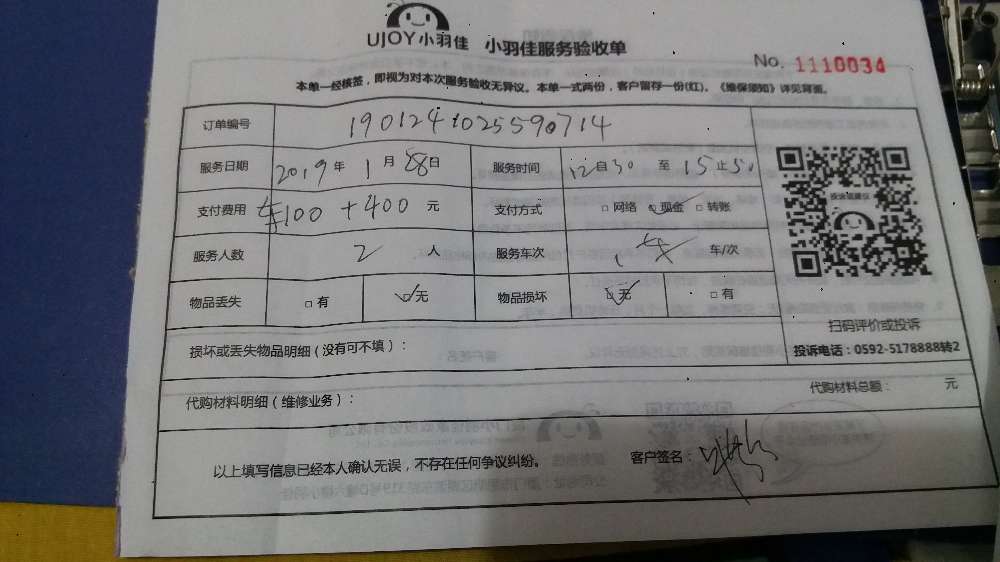 UJOY小羽佳 小羽佳服务验收单
No. 1110034
本单一经核签，即视为对本次服务验收无异议。本单一式两份，客户留存一份(红)。《维保须知》详见背面。
订单编号 1901241025590714
服务日期 2019年 1月 28日 服务时间 12自30 至 15止50
支付费用 车100+400 元 支付方式 □网络 ☑现金 □转账
服务人数 2 人 服务车次 1 车 车/次
物品丢失 □有 ☑无 物品损坏 ☑无 □有
扫码评价或投诉
投诉电话：0592-5178888转2
损坏或丢失物品明细（没有可不填）：
代购材料明细（维修业务）： 代购材料总额： 元
以上填写信息已经本人确认无误，不存在任何争议纠纷。 客户签名：